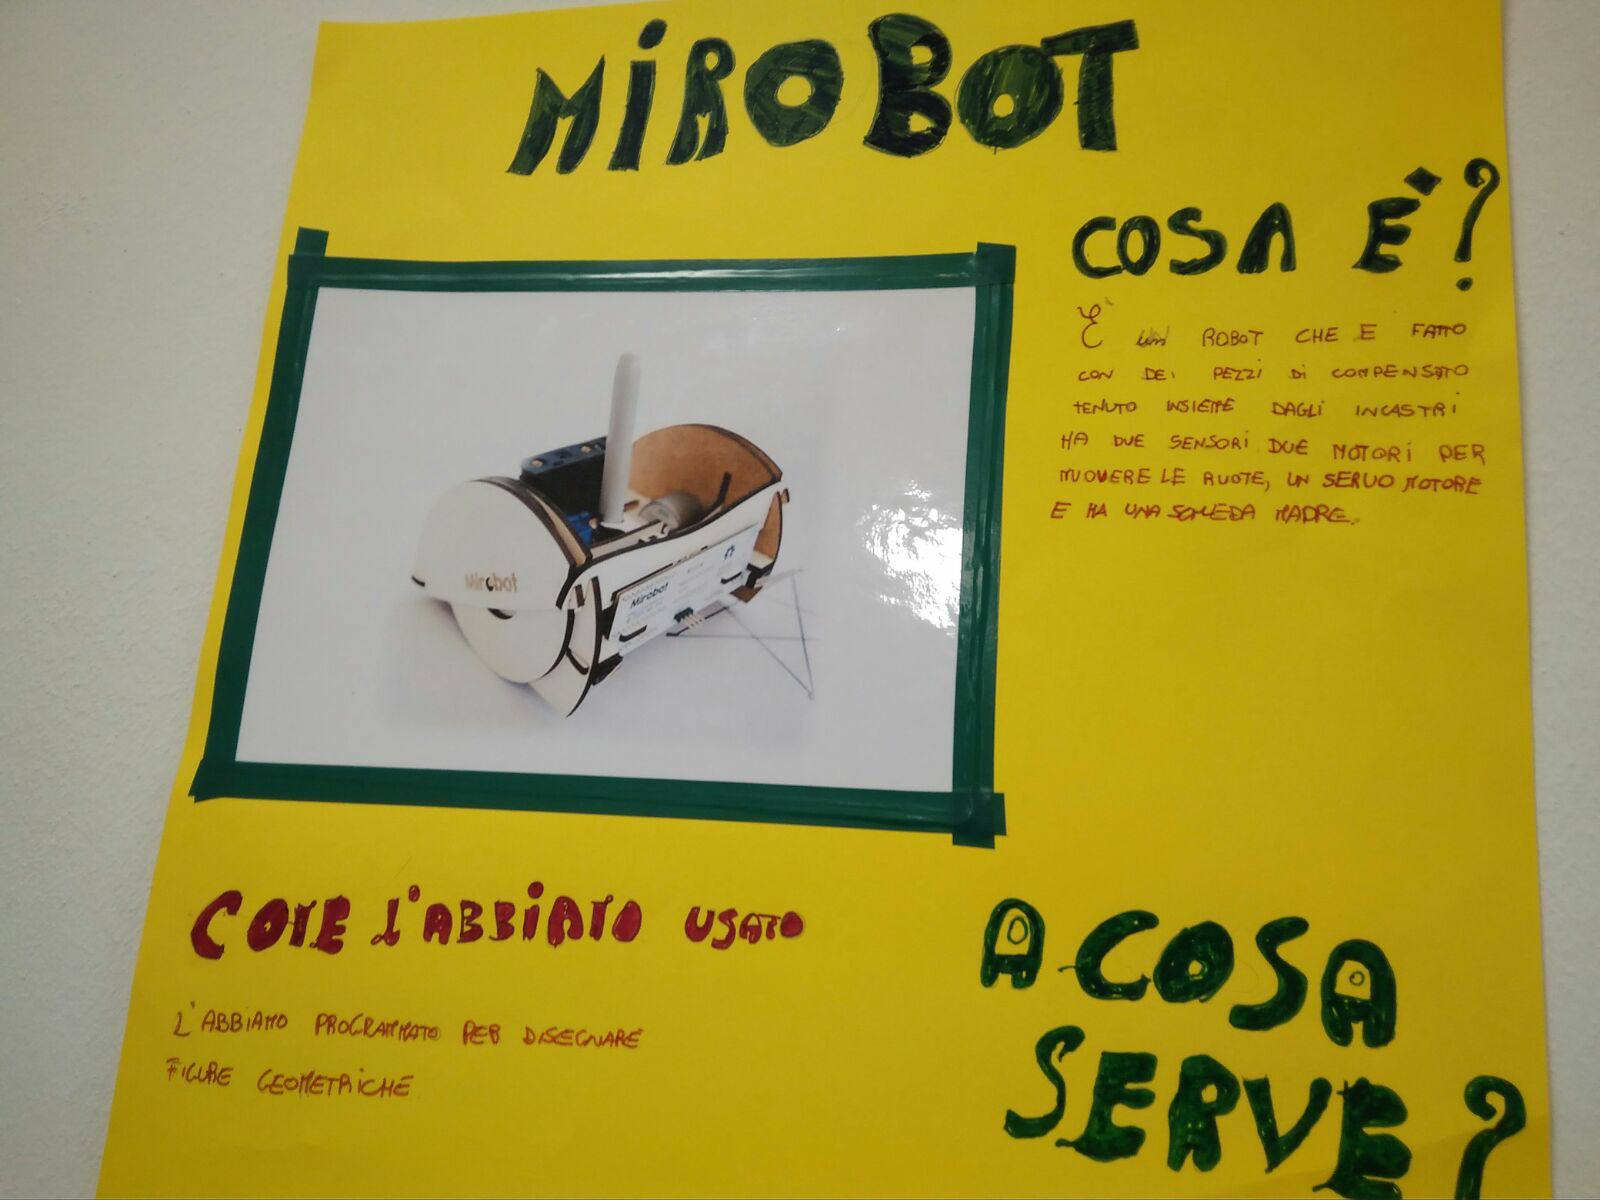 MiROBOT
COSA È?
È un ROBOT CHE E FATTO
CON DEi PEZZi Di COMPENSATO
TENUTO INSIEME DAGLI INCASTRI
HA DUE SENSORi DUE MOTORi PER
MUOVERE LE RUOTE, UN SERVO MOTORE
E HA UNA SCHEDA MADRE.
Mirobot
Mirobot
COME L'ABBiAMO USATO
L'ABBiAMO PROGRAMMATO PER DISEGNARE
FIGURE GEOMETRiCHE
A COSA
SERVE?